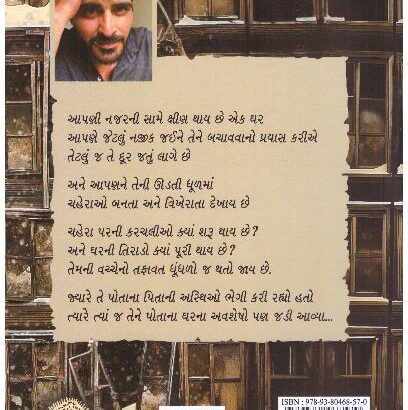 આપણી નજરની સામે ક્ષીણ થાય છે એક ઘર
આપણે જેટલું નજીક જઈને તેને બચાવવાનો પ્રયાસ કરીએ
તેટલું જ તે દૂર જતું લાગે છે
અને આપણને તેની ઊડતી ધૂળમાં
ચહેરાઓ બનતા અને વિખેરાતા દેખાય છે
ચહેરા પરની કરચલીઓ ક્યાં શરૂ થાય છે?
અને ઘરની તિરાડો ક્યાં પૂરી થાય છે?
તેમની વચ્ચેનો તફાવત ધૂંધળો જ થતો જાય છે.
જ્યારે તે પોતાના પિતાની અસ્થિઓ ભેગી કરી રહ્યો હતો
ત્યારે ત્યાં જ તેને પોતાના ઘરના અવશેષો પણ જડી આવ્યા...
ISBN : 978-93-80468-57-0